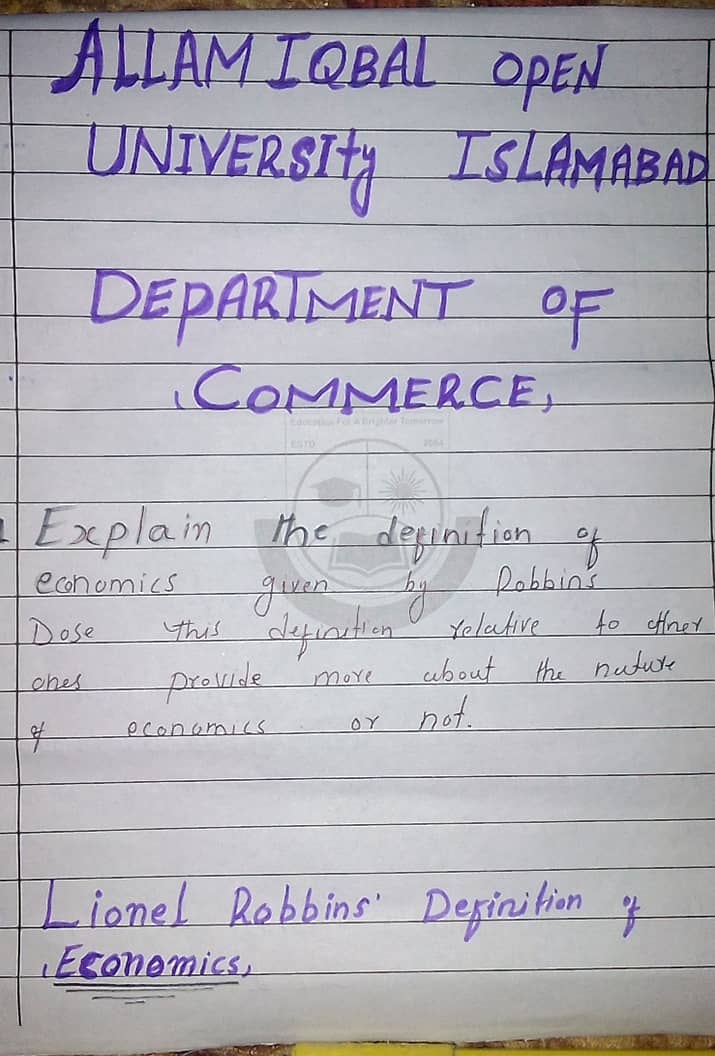 ALLAM IQBAL OPEN
UNIVERSITy ISLAMABAD
DEPARTMENT OF
COMMERCE,
Education For A Brighter Tomorrow
ESTD
Explain the definition of
economics given by Robbins
Dose this definition relative to other
ones provide more about the nature
of economics or not.
Lionel Robbins' Definition of
Economics,